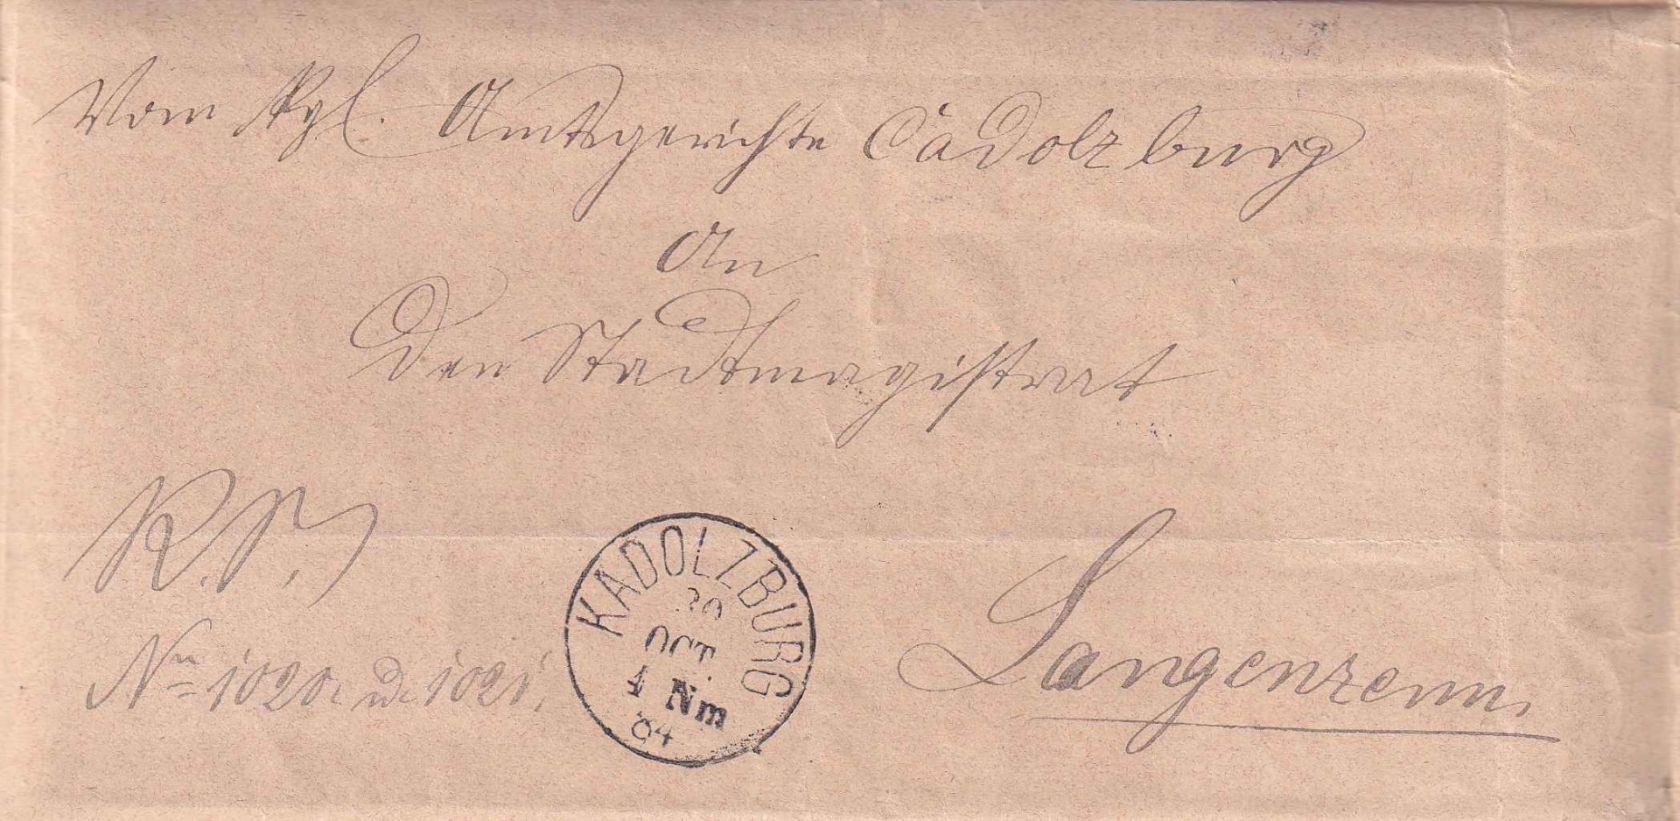 Vom Kgl. Amtsgerichte Cadolzburg
An
den Stadtmagistrat
R.S.)
Nro 1020. u. 1021.
KADOLZBURG
30
OCT.
4 Nm
84
Langenzenn.